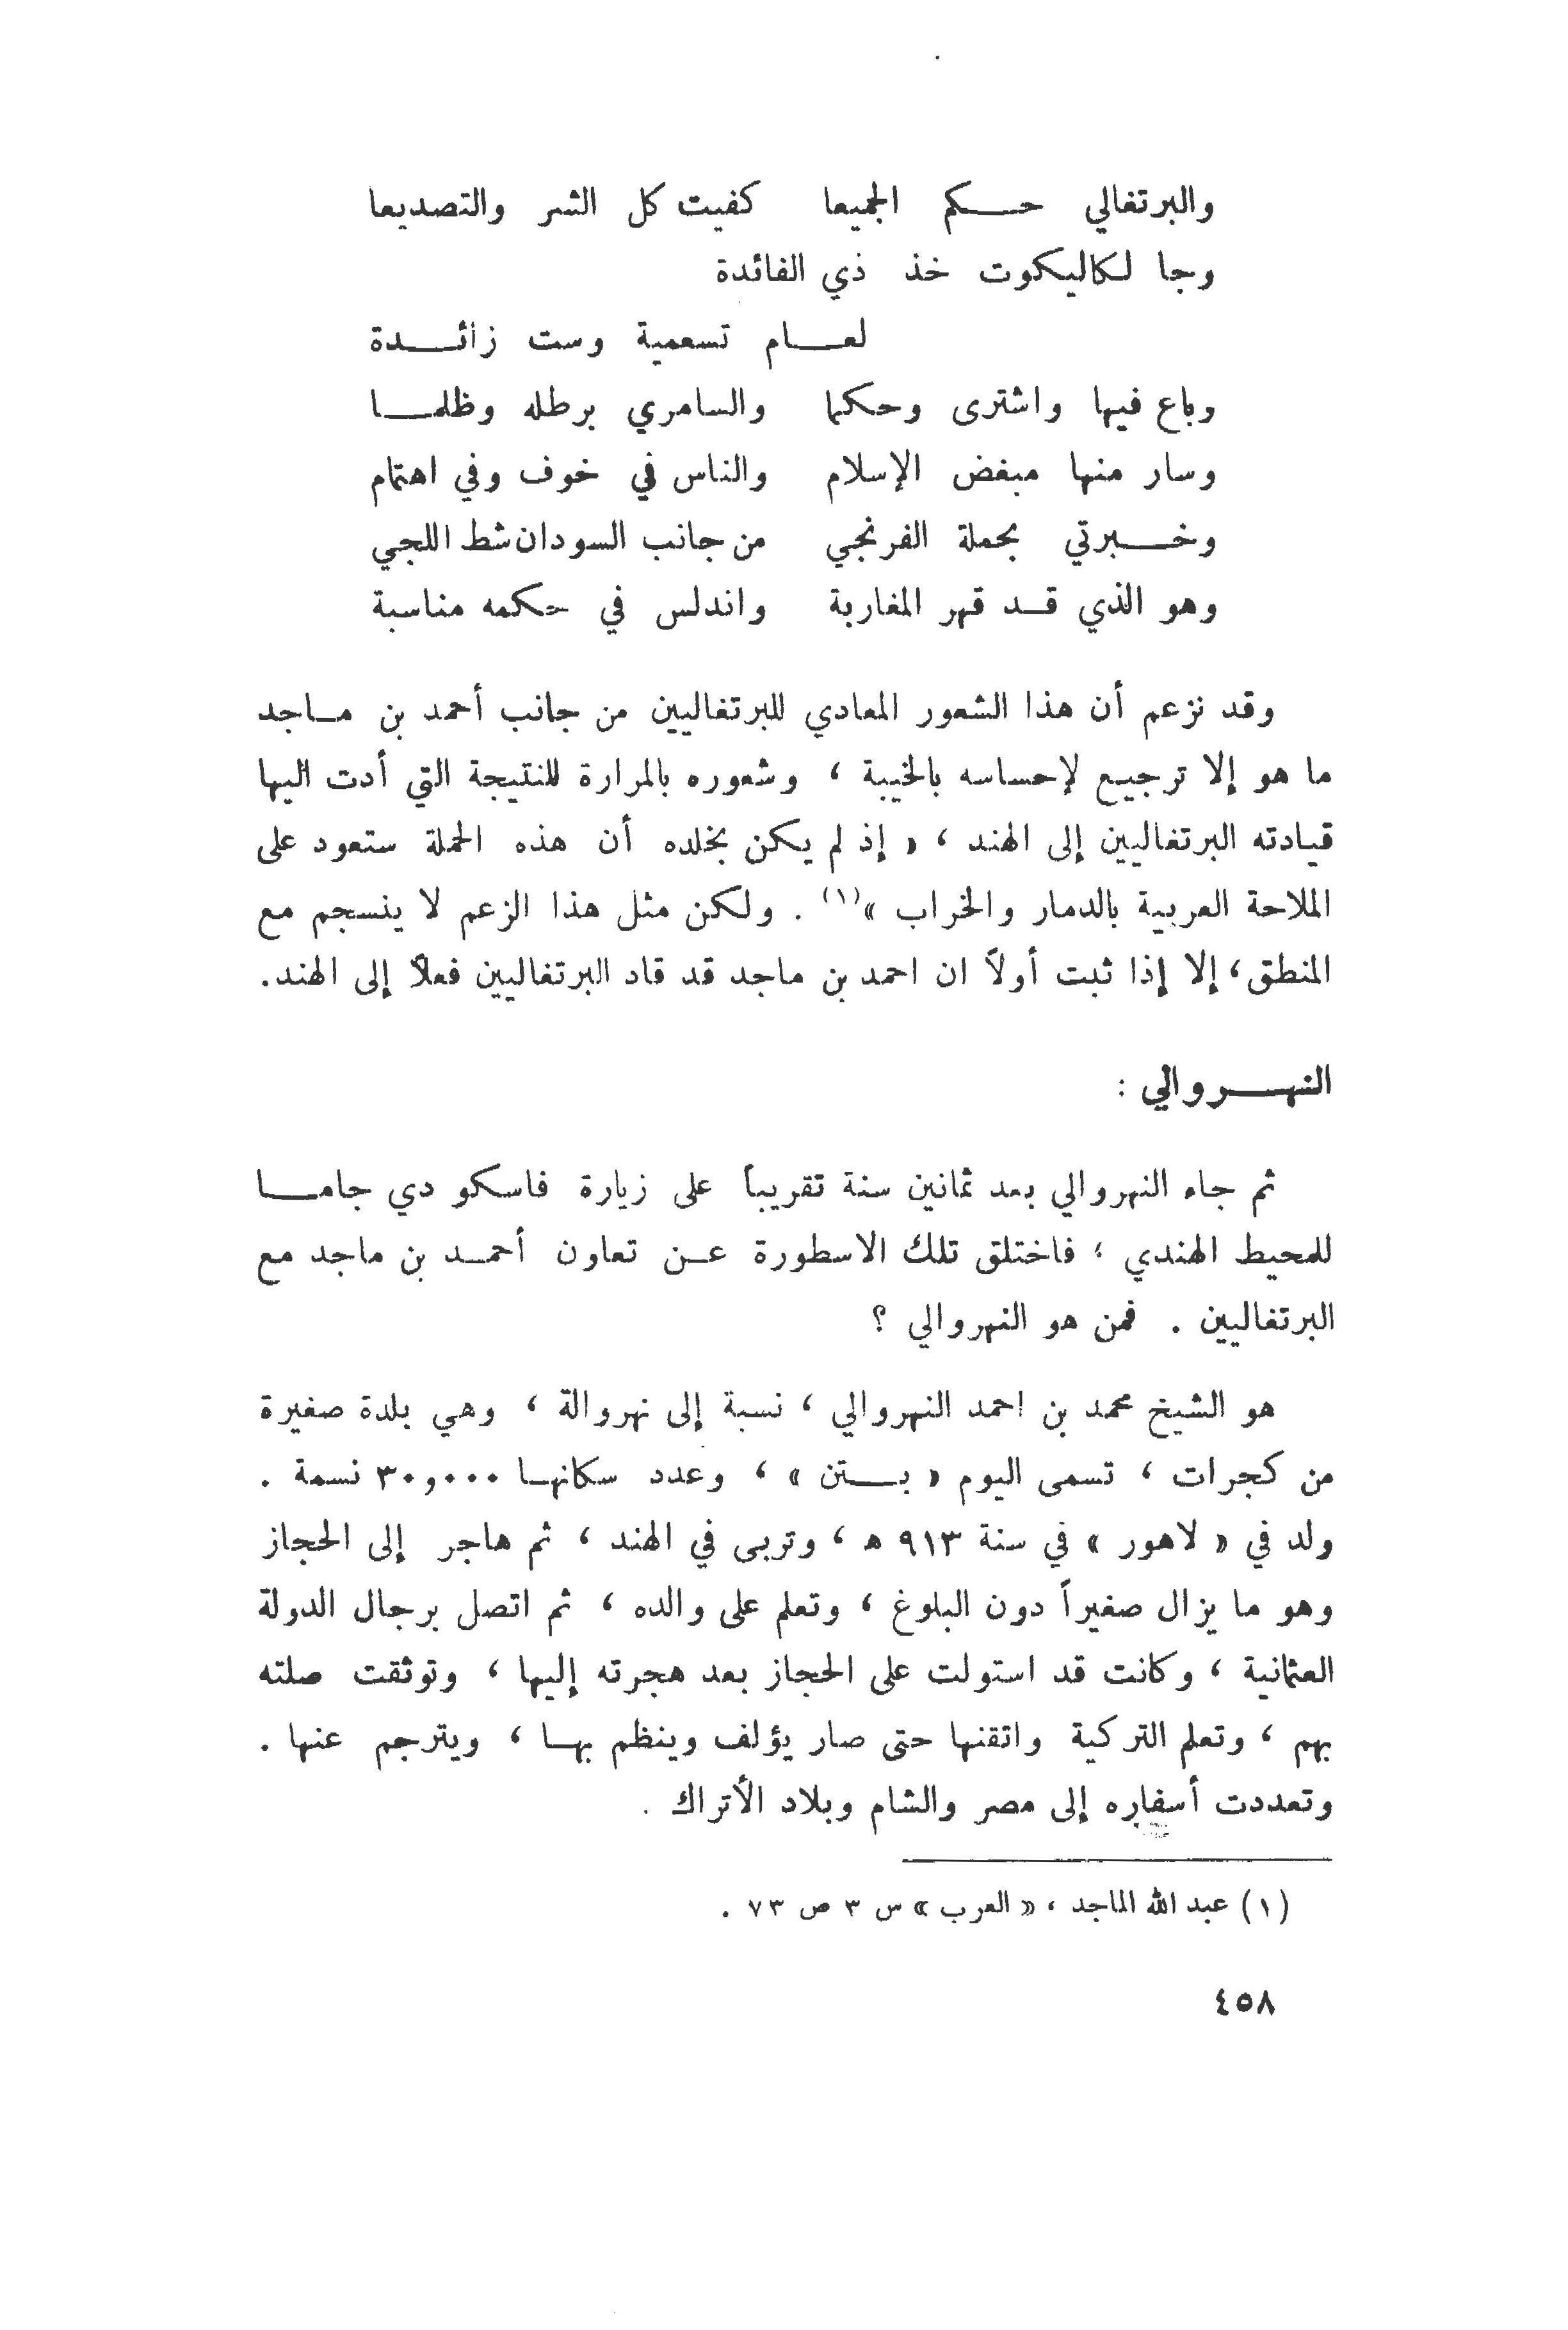 والبرتغالي حكم الجميعا كفيت كل الشر والتصديعا
وجا لكاليكوت خذ ذي الفائدة
لعام تسعمية وست زائدة
وباع فيها واشترى وحكما والسامري برطله وظلما
وسار منها مبغض الإسلام والناس في خوف وفي اهتمام
وخبرتي بحملة الفرنجي من جانب السودان شط اللجي
وهو الذي قد قهر المغاربة واندلس في حكمه مناسبة
وقد نزعم أن هذا الشعور المعادي للبرتغاليين من جانب أحمد بن ماجد
ما هو إلا ترجيع لإحساسه بالخيبة ، وشعوره بالمرارة للنتيجة التي أدت اليها
قيادته البرتغاليين إلى الهند ، « إذ لم يكن بخلده أن هذه الحملة ستعود على
الملاحة العربية بالدمار والخراب »(١) . ولكن مثل هذا الزعم لا ينسجم مع
المنطق، إلا إذا ثبت أولاً ان احمد بن ماجد قد قاد البرتغاليين فعلاً إلى الهند.
النهروالي :
ثم جاء النهروالي بعد ثمانين سنة تقريباً على زيارة فاسكو دي جاما
للمحيط الهندي ؛ فاختلق تلك الاسطورة عن تعاون أحمد بن ماجد مع
البرتغاليين . فمن هو النهروالي ؟
هو الشيخ محمد بن احمد النهروالي ، نسبة إلى نهروالة ، وهي بلدة صغيرة
من كجرات ، تسمى اليوم « بتن » ، وعدد سكانها ٣٠,٠٠٠ نسمة .
ولد في « لاهور » في سنة ٩١٣ ه ، وتربى في الهند ، ثم هاجر إلى الحجاز
وهو ما يزال صغيراً دون البلوغ ، وتعلم على والده ، ثم اتصل برجال الدولة
العثانية ، وكانت قد استولت على الحجاز بعد هجرته إليها ، وتوثقت صلته
بهم ، وتعلم التركية واتقنها حتى صار يؤلف وينظم بها ، ويترجم عنها .
وتعددت أسفاره إلى مصر والشام وبلاد الأتراك .
(١) عبد الله الماجد ، « العرب » س ٣ ص ٧٣ .
٤٥٨